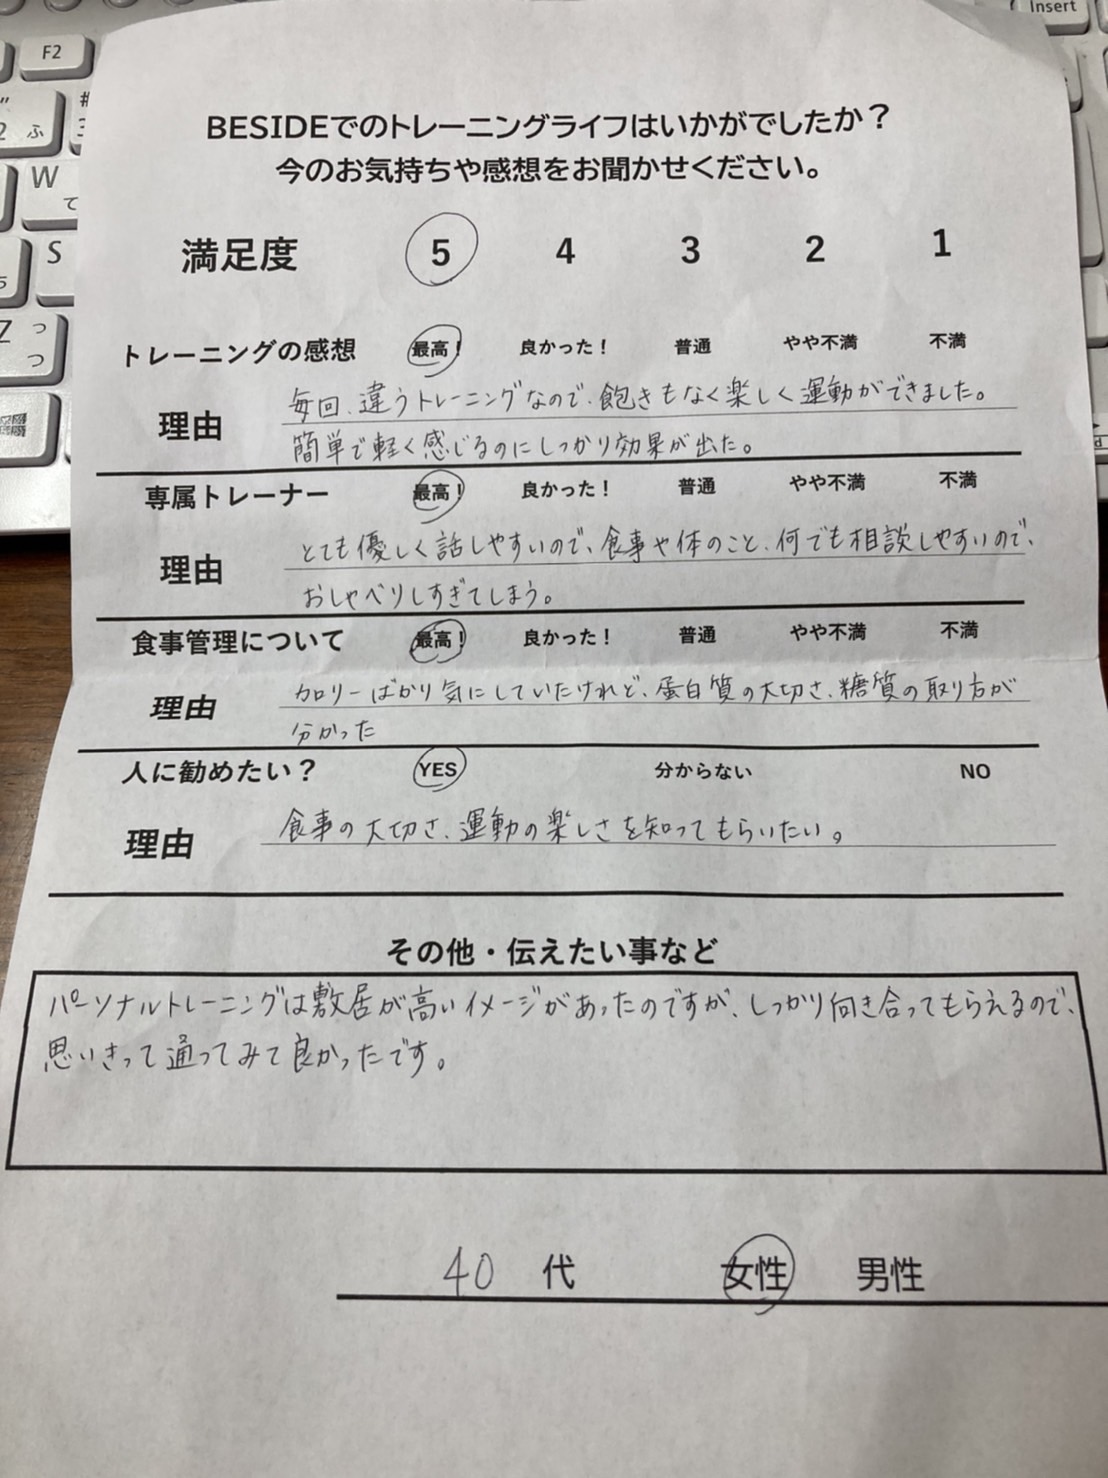 BESIDEでのトレーニングライフはいかがでしたか？
今のお気持ちや感想をお聞かせください。
満足度 5 4 3 2 1
トレーニングの感想 最高！ 良かった！ 普通 やや不満 不満
理由 毎回、違うトレーニングなので、飽きもなく楽しく運動ができました。
簡単で軽く感じるのにしっかり効果が出た。
専属トレーナー 最高！ 良かった！ 普通 やや不満 不満
理由 とても優しく話しやすいので、食事や体のこと、何でも相談しやすいので、
おしゃべりしすぎてしまう。
食事管理について 最高！ 良かった！ 普通 やや不満 不満
理由 カロリーばかり気にしていたけれど、蛋白質の大切さ、糖質の取り方が
分かった
人に勧めたい？ YES 分からない NO
理由 食事の大切さ、運動の楽しさを知ってもらいたい。
その他・伝えたい事など
パーソナルトレーニングは敷居が高いイメージがあったのですが、しっかり向き合ってもらえるので、
思いきって通ってみて良かったです。
40 代 女性 男性
F2
Insert
W
て
S
Z っ
つ
2 ふ